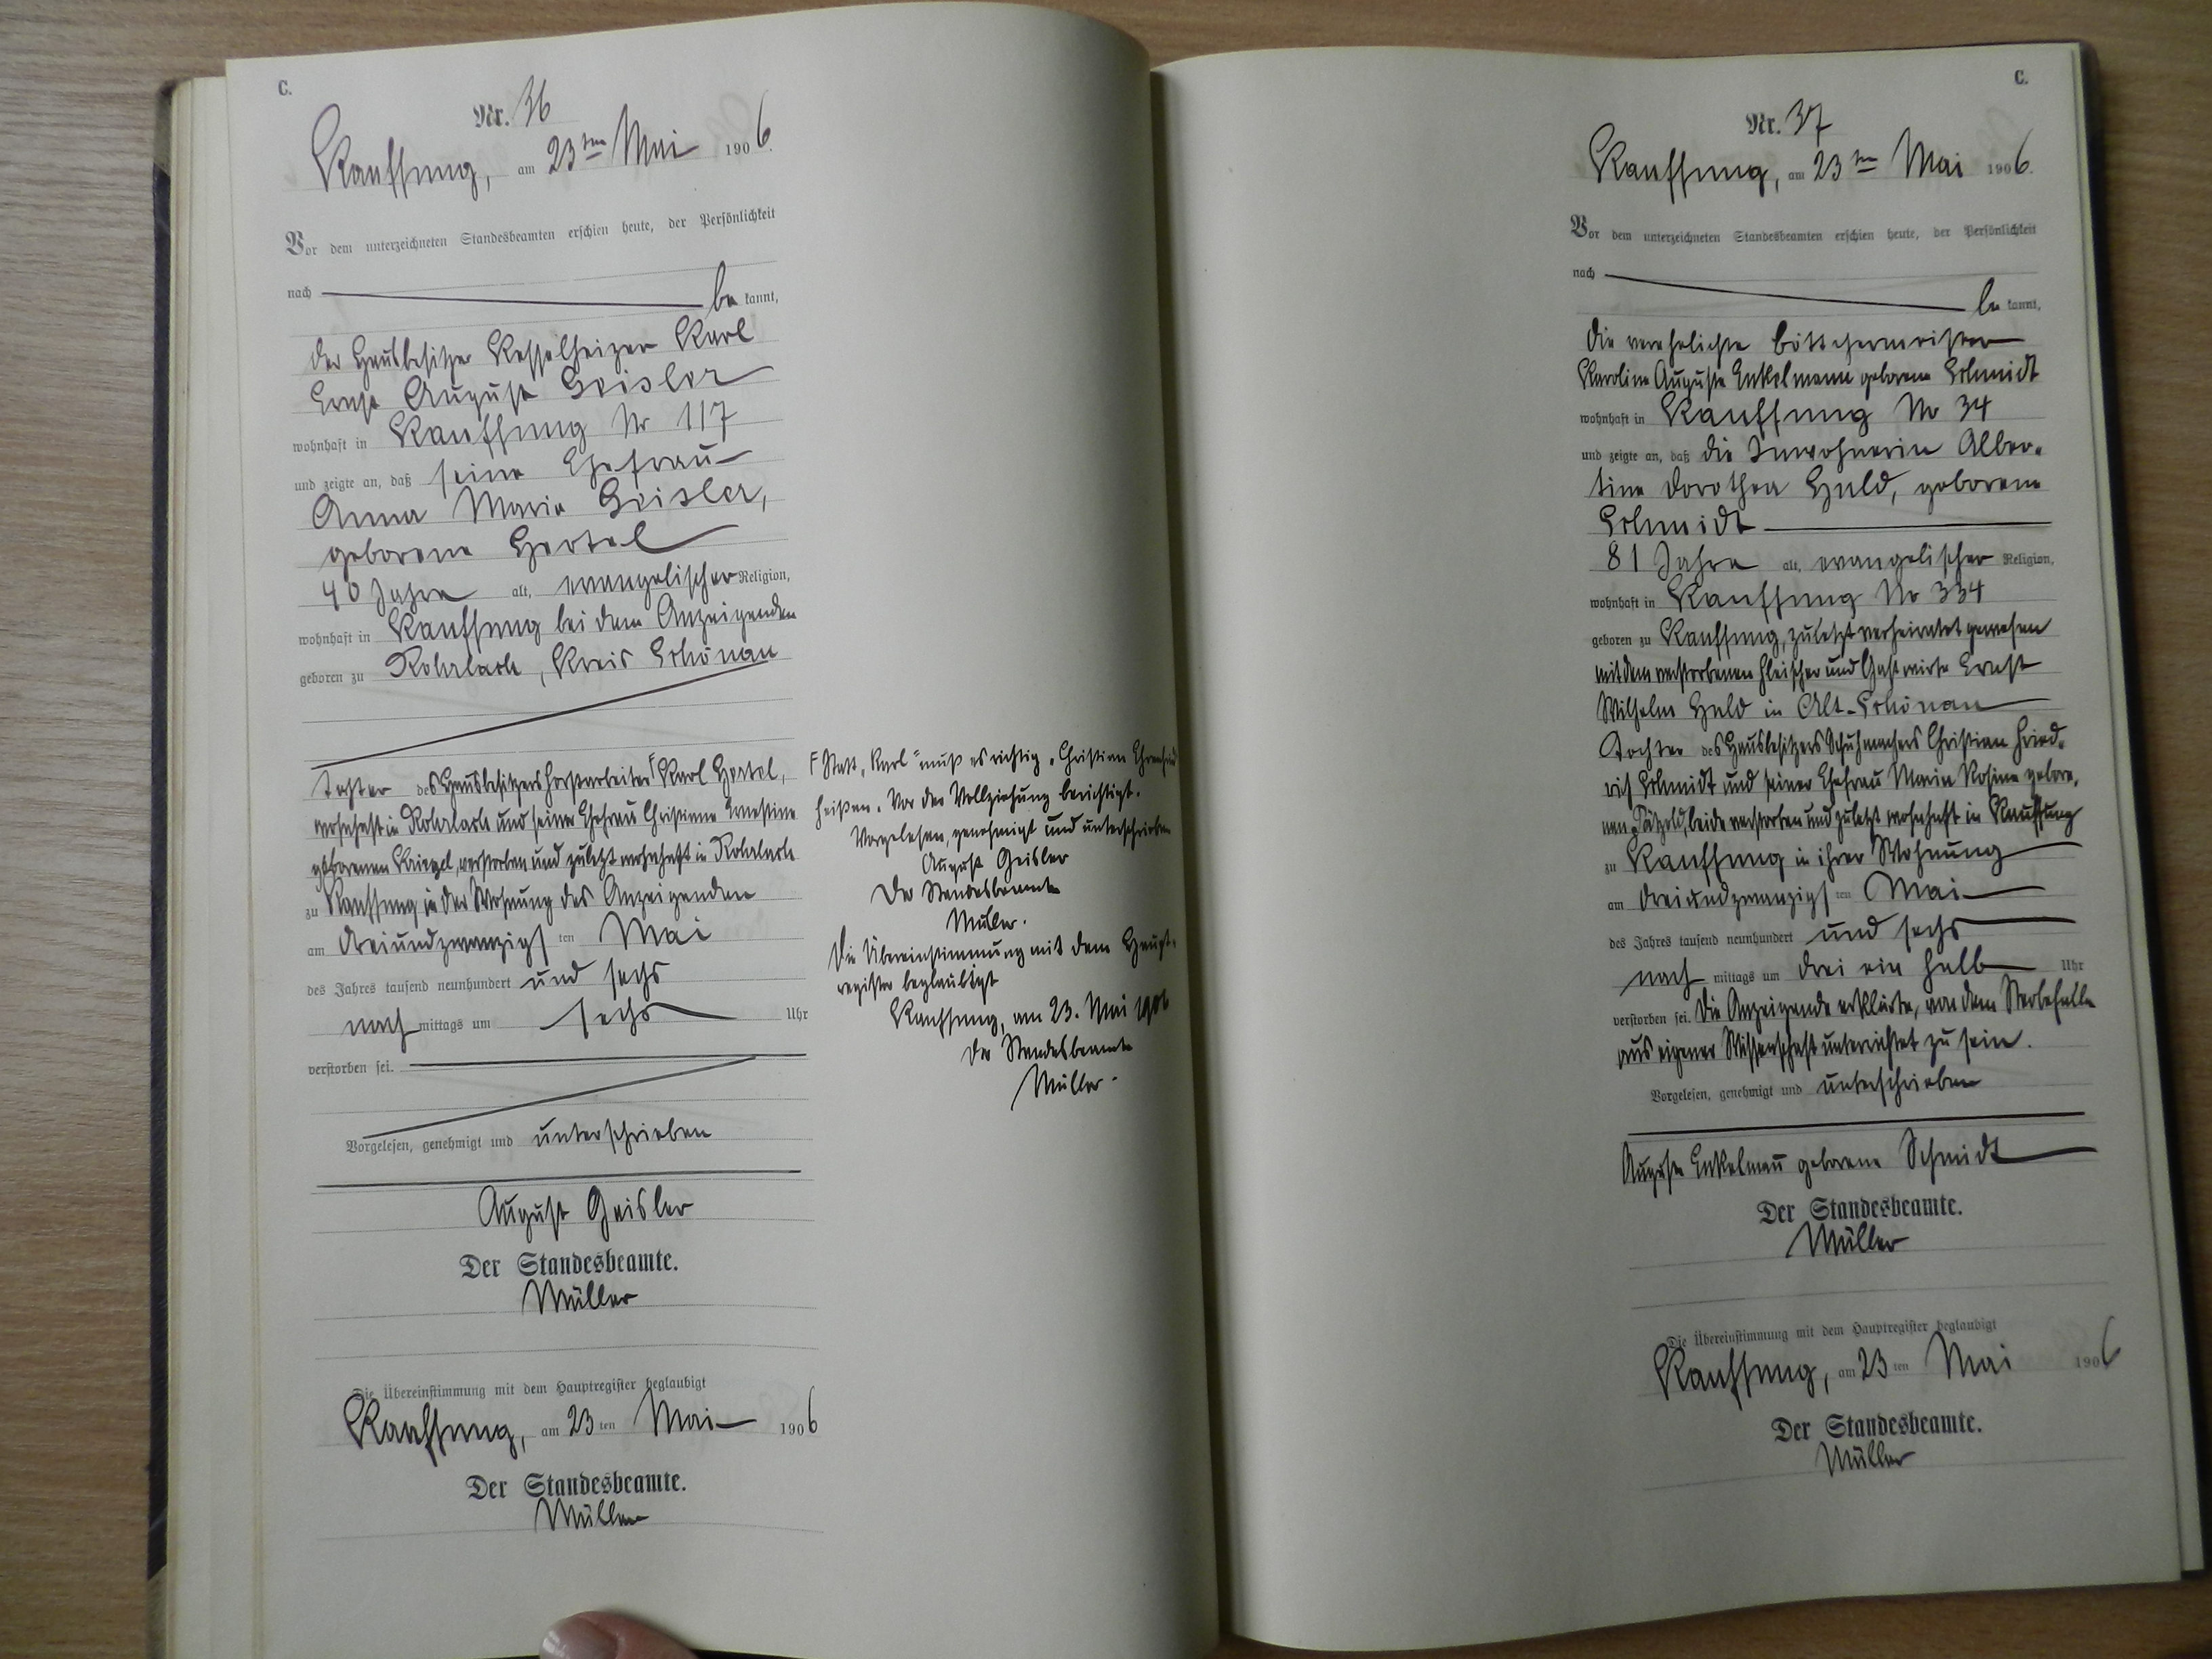 C.
Nr. 36
Kauffung, am 23ten Mai 1906.
Vor dem unterzeichneten Standesbeamten erschien heute, der Persönlichkeit
nach be kannt,
der Hausbesitzer Kesselheizer Karl
Ernst August Geisler
wohnhaft in Kauffung Nr 117
und zeigte an, daß seine Ehefrau
Anna Marie Geisler,
geborene Hertel
40 Jahre alt, evangelischer Religion,
wohnhaft in Kauffung bei dem Anzeigenden
geboren zu Rohrlach, Kreis Schönau
Tochter des Hausbesitzers Forstarbeiter ⌈Karl Hertel,
wohnhaft in Rohrlach und seiner Ehefrau Christiane Ernestine
geborenen Kriegel, verstorben und zuletzt wohnhaft in Rohrlach
zu Kauffung in der Wohnung des Anzeigenden
am dreiundzwanzigsten Mai
des Jahres tausend neunhundert und sechs
nach mittags um sechs Uhr
verstorben sei.
Vorgelesen, genehmigt und unterschrieben
August Geisler
Der Standesbeamte.
Müller
Die Übereinstimmung mit dem Hauptregister beglaubigt
Kauffung, am 23 ten Mai 1906
Der Standesbeamte.
Müller
⌈ Statt „Karl" muß es richtig „Christian Ehrenfried
heißen. Vor der Vollziehung berichtigt.
Vorgelesen, genehmigt und unterschrieben
August Geisler
Der Standesbeamte
Müller.
Die Übereinstimmung mit dem Haupt-
register beglaubigt
Kauffung, am 23. Mai 1906
Der Standesbeamte
Müller.
C.
Nr. 37
Kauffung, am 23ten Mai 1906.
Vor dem unterzeichneten Standesbeamten erschien heute, der Persönlichkeit
nach be kannt,
die verehelichte Böttchermeister
Karoline Auguste Enkelmann geborene Schmidt
wohnhaft in Kauffung No 34
und zeigte an, daß die Inwohnerin Alber-
tine Dorothea Huld, geborene
Schmidt
81 Jahre alt, evangelischer Religion,
wohnhaft in Kauffung No 334
geboren zu Kauffung, zuletzt verheiratet gewesen
mit dem verstorbenen Fleischer und Gastwirte Ernst
Wilhelm Huld in Alt-Schönau
Tochter des Hausbesitzers Schuhmachers Christian Fried-
rich Schmidt und seiner Ehefrau Maria Rosine gebore-
nen Pätzold, beide verstorben und zuletzt wohnhaft in Kauffung
zu Kauffung in ihrer Wohnung
am dreiundzwanzigsten Mai
des Jahres tausend neunhundert und sechs
nach mittags um drei ein halb Uhr
verstorben sei. Die Anzeigende erklärte, von dem Sterbefalle
aus eigener Wissenschaft unterrichtet zu sein.
Vorgelesen, genehmigt und unterschrieben
Auguste Enkelmañ geborene Schmidt
Der Standesbeamte.
Müller
Die Übereinstimmung mit dem Hauptregister beglaubigt
Kauffung, am 23 ten Mai 1906
Der Standesbeamte.
Müller